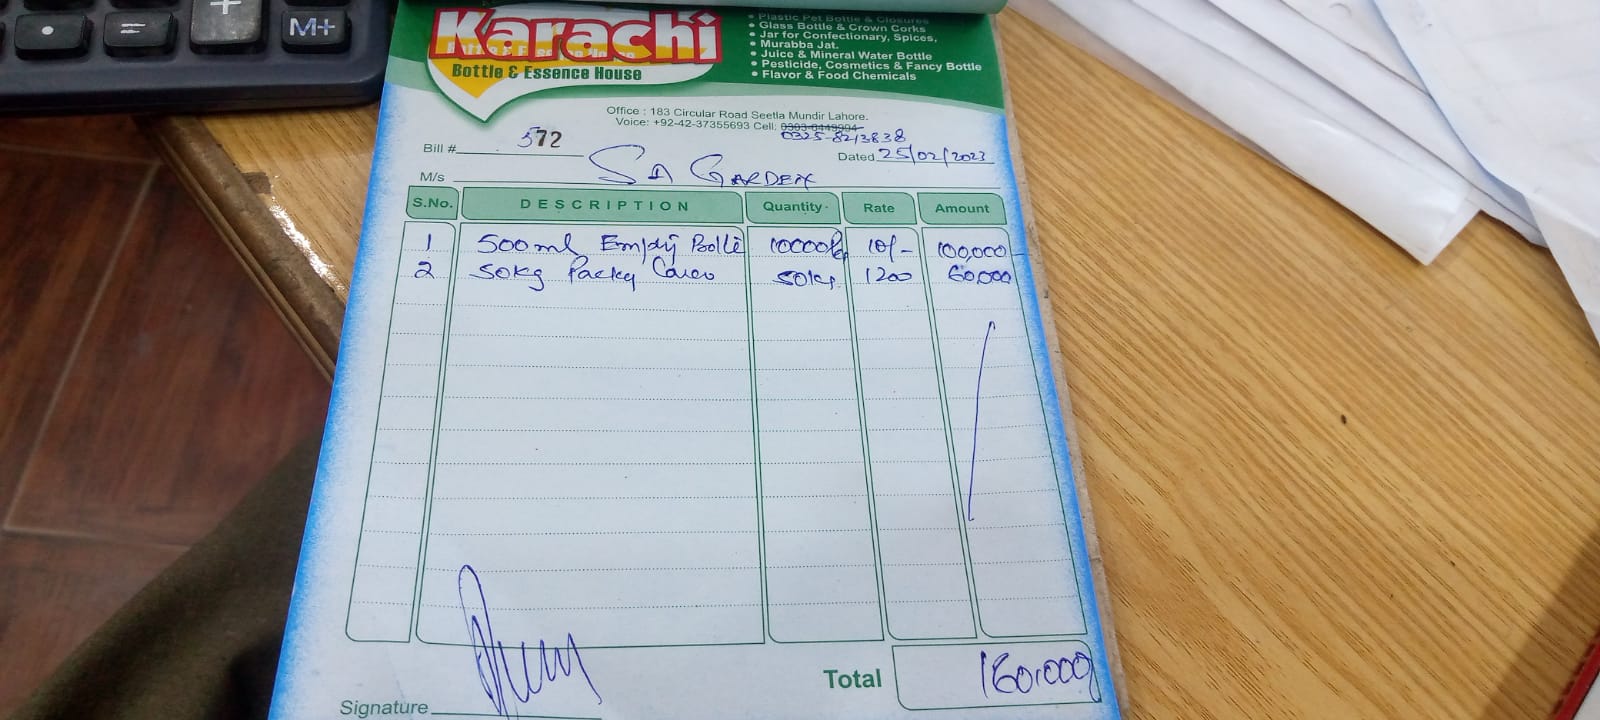 M+
=
+
Karachi
Bottle & Essence House
• Plastic Pet Bottle & Closures
• Glass Bottle & Crown Corks
• Jar for Confectionary, Spices,
• Murabba Jat.
• Juice & Mineral Water Bottle
• Pesticide, Cosmetics & Fancy Bottle
• Flavor & Food Chemicals
Office : 183 Circular Road Seetla Mundir Lahore.
Voice: +92-42-37355693 Cell:
0325-8213838
Bill # 572
Dated 25/02/2023
M/s SA GARDEN
S.No. DESCRIPTION Quantity Rate Amount
1 500ml Empty Bottle 10000 10/- 100,000
2 50kg 50kg 1200 60,000
Total 160,000
Signature